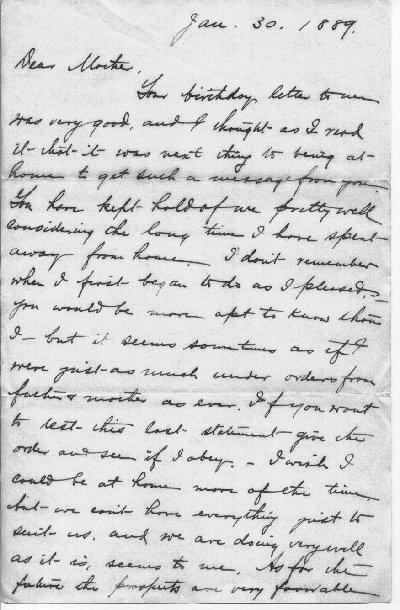 Jan. 30. 1889.
Dear Mother,
Your birthday letter to me
was very good, and I thought as I read
it that it was next thing to being at
home to get such a message from you.
You have kept hold of me pretty well
considering the long time I have spent
away from home. I don't remember
when I first began to do as I pleased,—
you would be more apt to know than
I — but it seems sometimes as if I
were just as much under orders from
father & mother as ever. If you want
to test this last statement give the
order and see if I obey. — I wish I
could be at home more of the time,
but we can't have everything just to
suit us, and we are doing very well
as it is, seems to me. As for the
future the prospects are very favorable